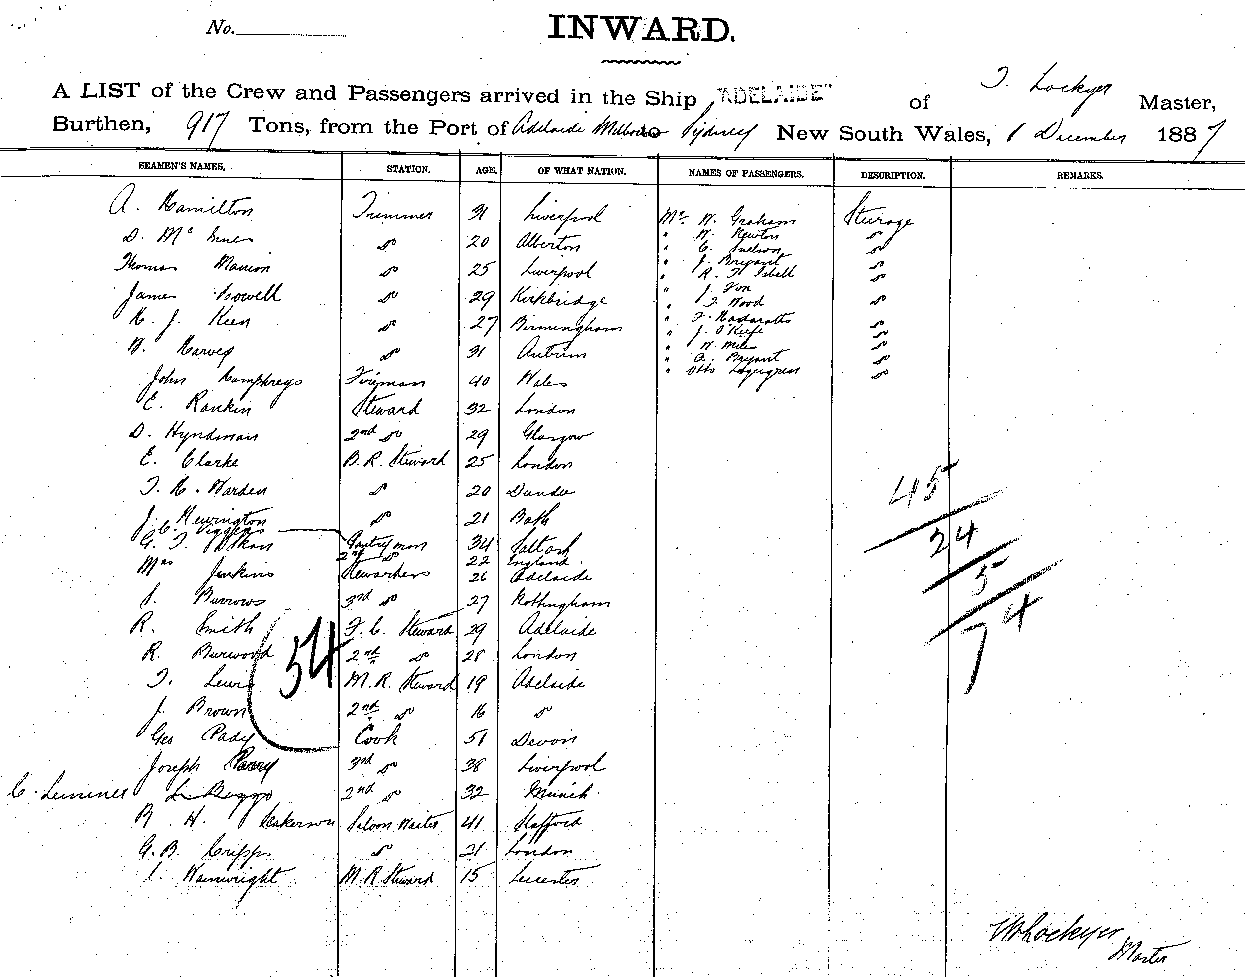 No.
INWARD.
A LIST of the Crew and Passengers arrived in the Ship "ADELAIDE" of Lockyer Master,
Burthen, 917 Tons, from the Port of Adelaide to Sydney New South Wales, 1 December 1887
SEAMEN'S NAMES. STATION. AGE. OF WHAT NATION. NAMES OF PASSENGERS. DESCRIPTION. REMARKS.
A. Hamilton Trimmer 31 Liverpool Mr W. Graham Steerage
D. Mc do 20 Alberton " W. Newton do
" do
Thomas Mannion do 25 Liverpool " J. Bryant do
" R. do
James Howell do 29 Kirkbridge " J. Fox
" Wood do
H. J. Keen do 27 Birmingham "
" J. O'Keefe do
W. Harvey do 31 Antrim " W. Miles do
" Bryant do
John Humphreys Fireman 40 Wales " Otto do
E. Rankin Steward 32 London
D. Hyndman 2nd do 29 Glasgow
E. Clarke B.R. Steward 25 London
Warden do 20 Dundee
45
J. Hewington do 21 Bath
Pantryman 34 Saltash
24
2nd do 22 England
Mrs Jenkins Stewardess 26 Adelaide
5
Burrows 3rd do 27 Nottingham
R. Smith F.C. Steward 29 Adelaide
74
54
R. Burwood 2nd do 28 London
Lewis M.R. Steward 19 Adelaide
J. Brown 2nd do 16 do
Geo Pady Cook 51 Devon
Joseph Parry 3rd do 38 Liverpool
2nd do 32 Munich
R. H. Saloon Waiter 41 Stafford
G. B. Cripps do 21 London
Wainwright M.R. Steward 15 Leicester
Lockyer
Master